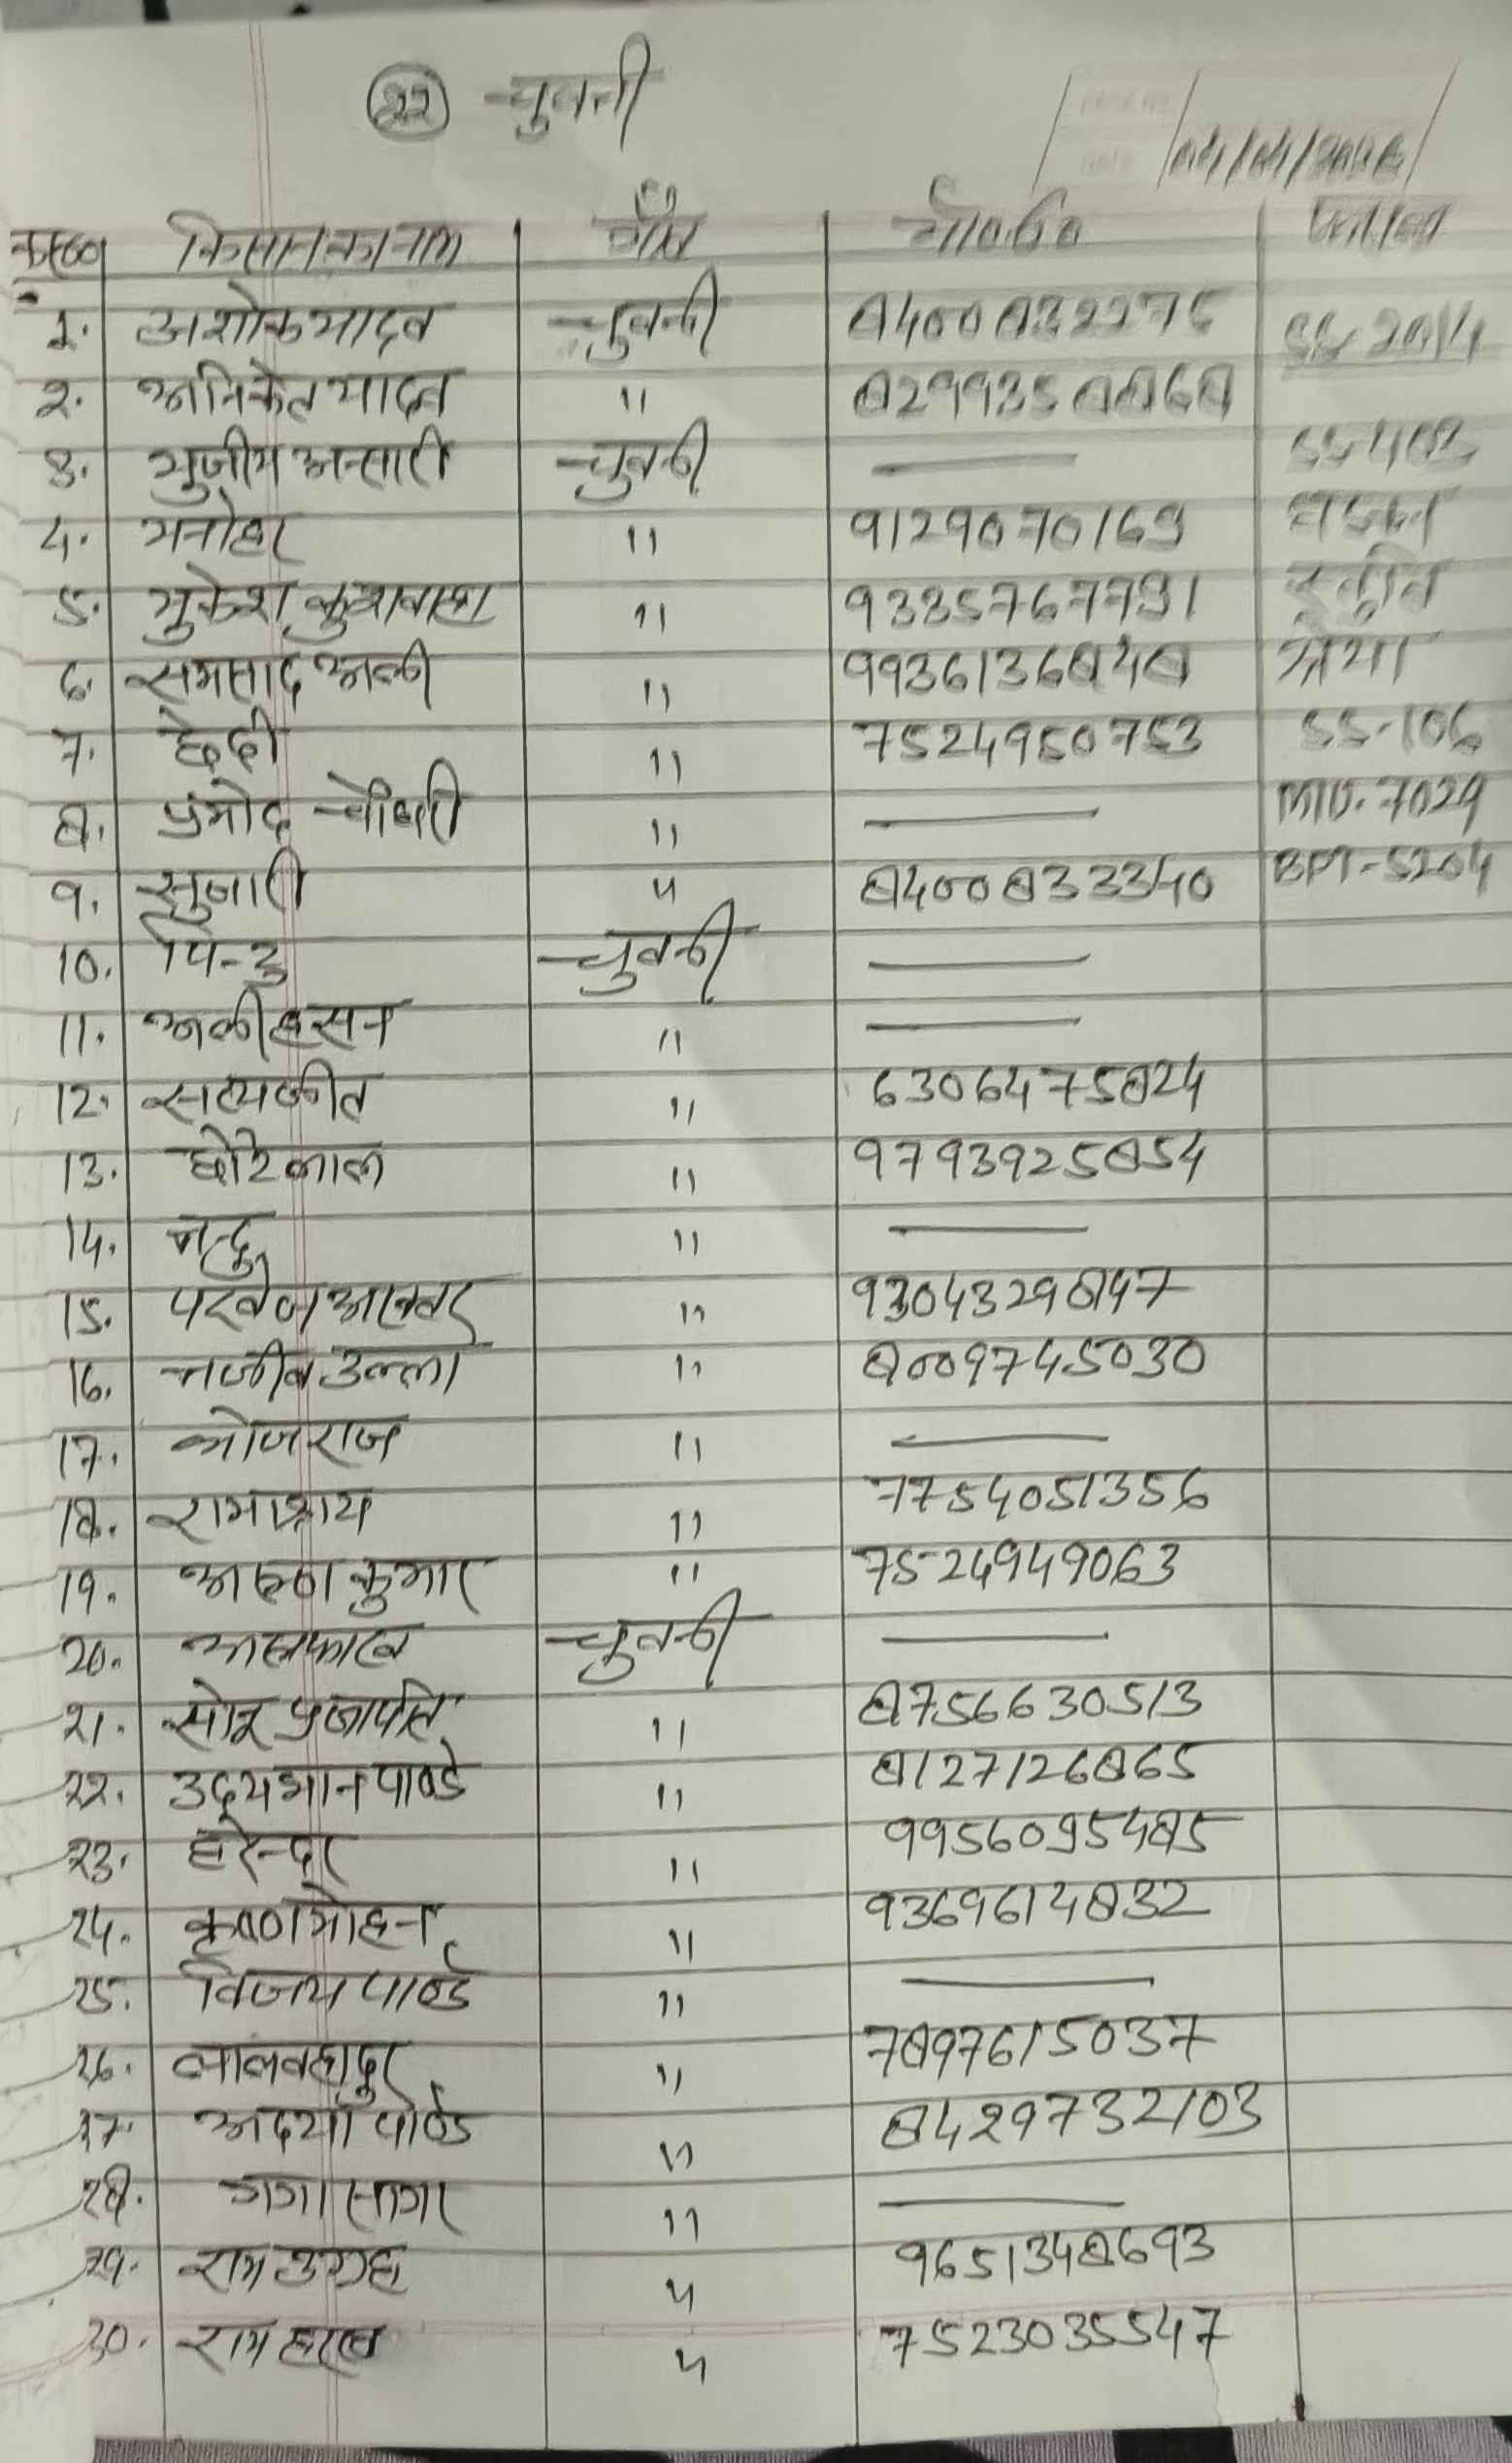 22 चुवनी
04/04/2026
क्र०सं० किसान का नाम गाँव मो०नं०
1. अशोक यादव चुवनी 8400832275
2. अनिकेत यादव " 8299350868 SS-2014
3. मुजीम अन्सारी चुवनी —— SS-403
4. मनोहर " 9129070169
5. मुकेश कुशवाहा " 9335767791
6. समसाद अली " 9936136848 श्रेया
7. छेदी " 7524950753 SS-106
8. प्रमोद चौधरी " —— MTU-7029
9. सुजारी " 8400833340 BPT-5204
10. पिन्टु चुवनी ——
11. अली हसन " ——
12. सत्यजीत " 6306475824
13. छोटेलाल " 9793925854
14. नन्दु " ——
15. परवेज अख्तर " 9304329847
16. नजीब उल्ला " 8009745030
17. भोजराज " ——
18. रामाश्रय " 7754051356
19. अरुण कुमार " 7524949063
20. चुवनी ——
21. सोनू प्रजापति " 8756630513
22. उदयभान पाण्डे " 8127126865
23. हरेन्दर " 9956095485
24. कृष्ण मोहन " 9369614832
25. विजय पाण्डे " ——
26. लालबहादुर " 7897615037
27. अदया पाण्डे " 8429732103
28. गंगा सागर " ——
29. राम उग्रह " 9651348693
30. राम हरख " 7523035547